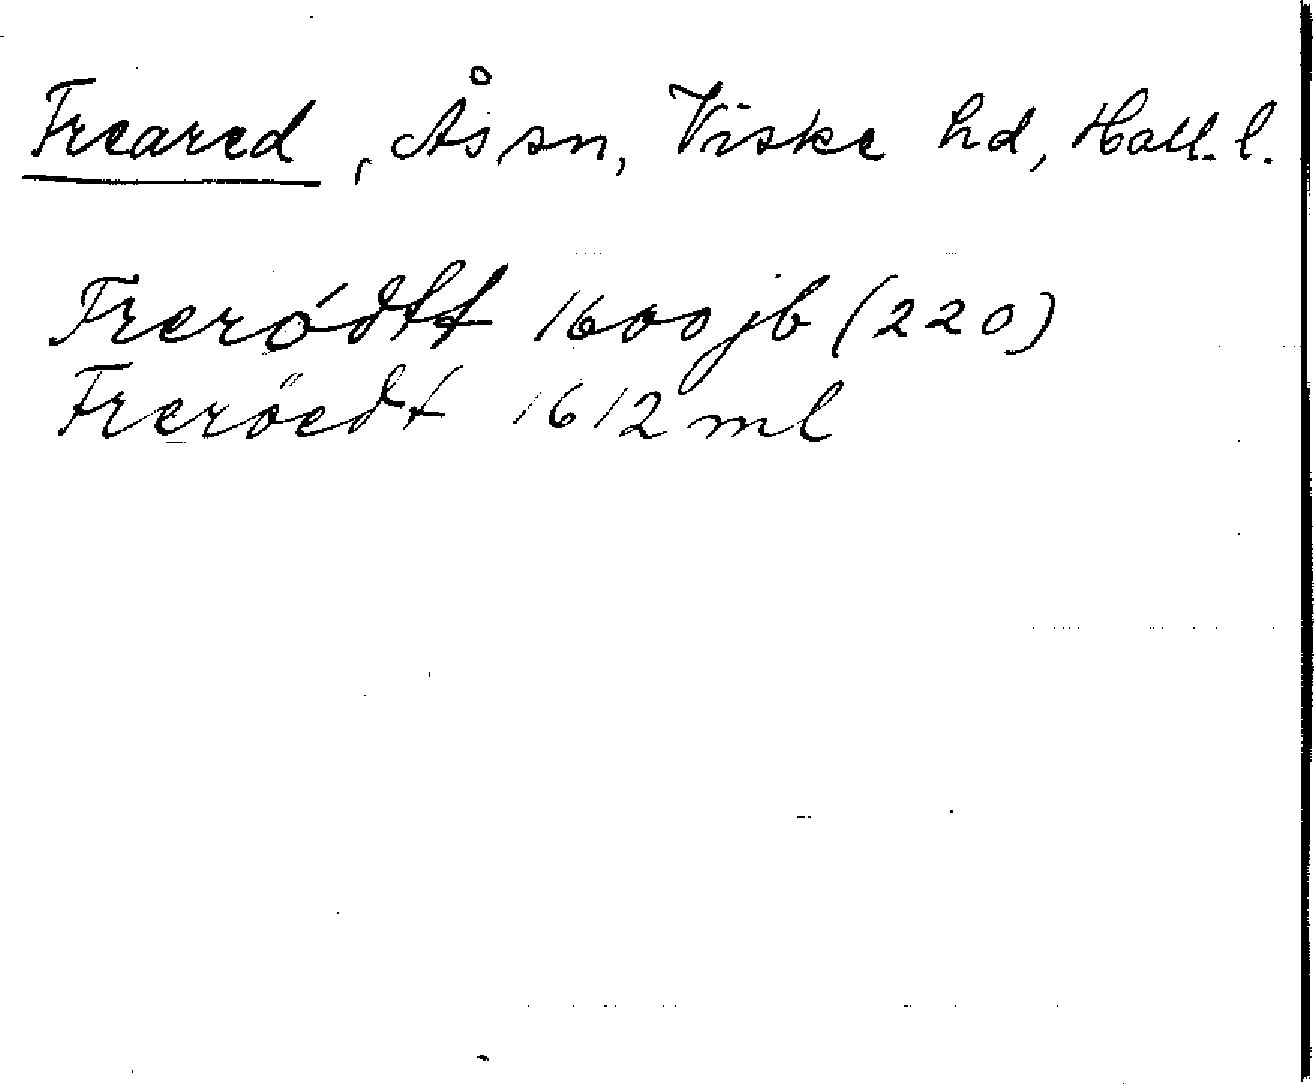 Freared, Ås sn, Viske hd, Hall. l.
Frerødtt 1600 jb (220)
Freröedt 1612 ml